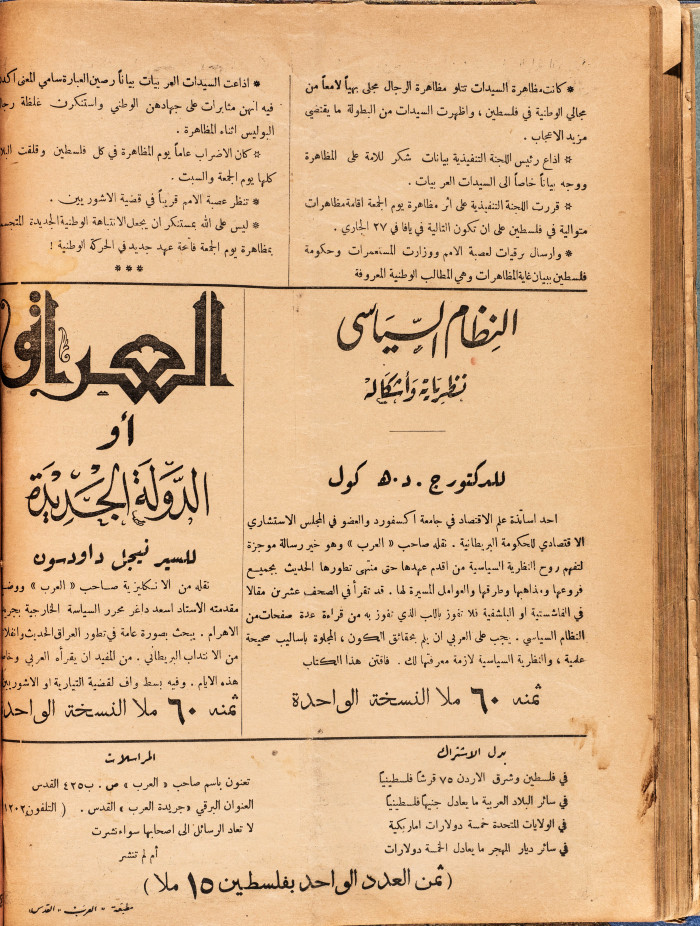 * كانت مظاهرة السيدات تتلو مظاهرة الرجال مجلى بهياً لامعاً من
مجالي الوطنية في فلسطين ، واظهرت السيدات من البطولة ما يقتضي
مزيد الاعجاب .
* اذاع رئيس اللجنة التنفيذية بيانات شكر للامة على المظاهرة
ووجه بياناً خاصاً الى السيدات العربيات .
* قررت اللجنة التنفيذية على أثر مظاهرة يوم الجمعة اقامة مظاهرات
متوالية في فلسطين على ان تكون التالية في يافا في ٢٧ الجاري .
* وارسال برقيات لعصبة الامم ووزارت المستعمرات وحكومة
فلسطين ببيان غاية المظاهرات وهي المطالب الوطنية المعروفة
* اذاعت السيدات العربيات بياناً رصين العبارة سامي المعنى
فيه انهن مثابرات على جهادهن الوطني واستنكرن غلظة
البوليس اثناء المظاهرة .
* كان الاضراب عاماً يوم المظاهرة في كل فلسطين وقلقت
كلها يوم الجمعة والسبت .
* تنظر عصبة الامم قريباً في قضية الاشوريين .
* ليس على الله بمستنكر ان يجعل الانتباهة الوطنية الجديدة
بمظاهرة يوم الجمعة فاتحة عهد جديد في الحركة الوطنية !
* * *
النظام السياسي
نظرياته وأشكاله
للدكتور ج . د . ه كول
احد اساتذة علم الاقتصاد في جامعة اكسفورد والعضو في المجلس الاستشاري
الاقتصادي للحكومة البريطانية . نقله صاحب « العرب » وهو خير رسالة موجزة
لتفهم روح النظرية السياسية من اقدم عهدها حتى منتهى تطورها الحديث بجميع
فروعها ومذاهبها وطرقها والعوامل المسيرة لها . قد تقرأ في الصحف عشرين مقالا
في الفاشستية او البلشفية فلا تفوز باللب الذي تفوز به من قراءة عدة صفحات من
النظام السياسي . يجب على العربي ان يلم بحقائق الكون ، المجلوة باساليب صحيحة
علمية ، والنظرية السياسية لازمة معرفتها لك . فاقتن هذا الكتاب
ثمنه ٦٠ ملا النسخة الواحدة
العراق
أو
الدولة الجديدة
للسير نيجل داودسون
نقله من الانكليزية صاحب « العرب »
مقدمته الاستاذ اسعد داغر محرر السياسة الخارجية
الاهرام . يبحث بصورة عامة في تطور العراق الحديث
من الانتداب البريطاني . من المفيد ان يقرأه العربي
هذه الايام . وفيه بسط واف لقضية التيارية او الاشوريين
ثمنه ٦٠ ملا النسخة الواحدة
بدل الاشتراك
في فلسطين وشرق الاردن ٧٥ قرشاً فلسطينياً
في سائر البلاد العربية ما يعادل جنيهاً فلسطينياً
في الولايات المتحدة خمسة دولارات اماريكية
في سائر ديار المهجر ما يعادل الخمسة دولارات
المراسلات
تعنون باسم صاحب « العرب » ص . ب ٤٢٥ القدس
العنوان البرقي « جريدة العرب » القدس . ( التلفون
لا تعاد الرسائل الى اصحابها سواء نشرت
أم لم تنشر
( ثمن العدد الواحد بفلسطين ١٥ ملا )
مطبعة « العرب » القدس